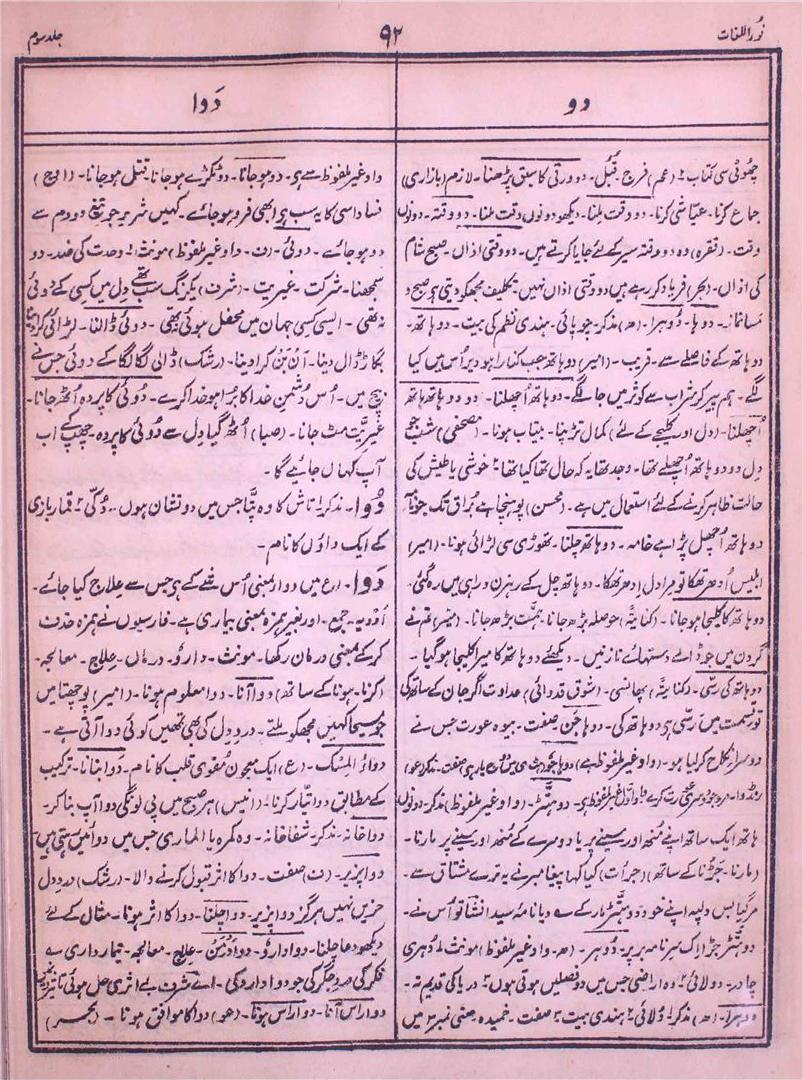 نُور اللغات
۹۲
جلد سوم
دو
دَوا
چھوٹی سی کتاب ۲ (عم) فرج۔ قُبُل۔ دو ورقی کا سبق پڑھنا۔ لازم (بازاری)
جماع کرنا۔ عیّاشی کرنا۔ دو وقت ملنا۔ دیکھو دونوں وقت ملنا۔ دو وقتہ۔ دونوں
وقت۔ (فقرہ) وہ دو وقتہ سیر کے لئے جایا کرتے ہیں۔ دو وقتی اذاں۔ صبح شام
کی اذاں۔ (بحر) فریاد کر رہے ہیں دو وقتی اذاں نہیں۔ تکلیف مجھکو دیتی ہی صبح و
مسا نماز۔ دوہا۔ دُوہرا۔ (ھ) مذکر۔ چوپائی۔ ہندی نظم کی بیت۔ دو ہاتھ۔
دو ہاتھ کے فاصلے سے۔ قریب۔ (امیر) دو ہاتھ جب کنارا ہو دیر اُس میں کیا
لگے۔ ہم پیر کر شراب سے کوثر میں جا لگے۔ دو ہاتھ اُچھلنا۔ دو دو ہاتھ ہاتھ
اُچھلنا۔ (دل اور کلیجے کے لئے) کمال تڑپنا۔ بیتاب ہونا۔ (مصحفی) شب ہجو
دل دو دو ہاتھ اُچھلے تھا۔ وجد تھا یہ کہ حال تھا کیا تھا ۲ خوشی یا طیش کی
حالت ظاہر کرنے کے لئے استعمال میں ہے۔ (محسن) پہنچا ہے بُراق تک جو نامہ
دو ہاتھ اُچھل پڑا ہے خامہ۔ دو ہاتھ چلنا۔ تھوڑی سی لڑائی ہونا۔ (امیر)
ابلیس اُدھر تھکا تو مرا دل اِدھر تھکا۔ دو ہاتھ چل کے رہزن و راہی میں رہ گئی۔
دو ہاتھ کا کلیجا ہو جانا۔ (کنایۃً) حوصلہ بڑھ جانا۔ ہمّت بڑھ جانا۔ (میر) تم نے
گردن میں جو ڈالے دستہائے نازنیں۔ دیکھئے دو ہاتھ کا میرا کلیجا ہو گیا۔
دو ہاتھ کی رسّی۔ (کنایۃً) پھانسی۔ (شوق قدوائی) عداوت اگر جان کے ساتھ کی
تو قسمت میں رسّی ہی دو ہاتھ کی۔ دوہاجَن۔ صفت۔ بیوہ عورت جس نے
دوسرا نکاح کر لیا ہو۔ (واو غیر ملفوظ ہے) دوہاجو
رنڈوا۔ مرد جو دوسری عورت کرے۔ دوہتّڑ۔ (واو غیر ملفوظ) مذکر۔ دونوں
ہاتھ ایک ساتھ اپنے مُنھ اور سینے پر یا دوسرے کے مُنھ اور سینے پر مارنا۔
(مارنا۔ جَڑنا کے ساتھ) (جرأت) کیا کہا پیغامبر نے یہ ترے مشتاق سے۔
مر گیا بس دلپہ اپنے خود دو ہتّڑ مار کے۔ دیا نامہ سید انشا تو اُس نے۔
دو ہتّڑ جڑا اک سر نامہ بر پر۔ دُوہر۔ (ھ۔ واو غیر ملفوظ) مونث۔ ۱ دُہری
چادر۔ دولائی ۲ وہ اراضی جس میں دو فصلیں ہوتی ہوں ۳ دریا کی قدیم تہ۔
دوہرا۔ (ھ) مذکر۔ ۱ دُلائی ۲ ہندی بیت ۳ صفت۔ خمیدہ معنی نمبر ۲ میں
واو غیر ملفوظ سے ہی۔ دو ہو جانا۔ دو ٹکڑے ہو جانا۔ قتل ہو جانا۔ (اوج)
فساد اسی کا یہ سب ہی ابھی فرو ہو جائے۔ کہیں شریر جو تیغ دو دم سے
دو ہو جائے۔ دوئی۔ (ف۔ واو غیر ملفوظ) مونث ۱ وحدت کی ضد۔ دو
سمجھنا۔ شرکت۔ غیریت۔ (شرف) یکرنگ سب تھے دل میں کسی کے دوئی
نہ تھی۔ ایسی کسی جہان میں محفل ہوئی تھی۔ دوئی ڈالنا۔ لڑائی کرا دینا
بگاڑ ڈال دینا۔ اَن بَن کرا دینا۔ (رشک) ڈالی لگا لگا کے دوئی جس نے
بیچ میں۔ اُس دشمنِ خدا کا بُرا ہو خدا کرے۔ دُوئی کا پردہ اُٹھ جانا۔
غیریّت مٹ جانا۔ (صبا) اُٹھ گیا دل سے دُوئی کا پردہ۔ چھپ کے اب
آپ کہاں جائیے گا۔
دُوا۔ مذکر۔ ۱ تاش کا وہ پتّا جس میں دو نشان ہوں۔ دُکّی ۲ قمار بازی
کے ایک داؤں کا نام۔
دَوا۔ (ع میں دوا بمعنی اُس شے کے ہی جس سے علاج کیا جائے۔
اَدْویہ۔ جمع۔ اور بغیر ہمزہ بمعنی بیماری ہے۔ فارسیوں نے ہمزہ حذف
کر کے بمعنی درمان رکھا۔ مونث۔ دارُو۔ درماں۔ علاج۔ معالجہ۔
(کرنا۔ ہونا کے ساتھ) دوا آنا۔ دوا معلوم ہونا۔ (امیر) پوچھتا میں
جو مسیحا کہیں مجھکو ملتے۔ دردِ دل کی بھی تمھیں کوئی دوا آتی ہے۔
دواءُ المِسْک۔ (ع) ایک معجون مُقوی قلب کا نام۔ دَوا بنانا۔ ترکیب
کے مطابق دوا تیّار کرنا۔ (انیس) ہر صبح میں پی لونگی دوا آپ بنا کر۔
دوا خانہ۔ مذکر۔ شفاخانہ۔ وہ کمرہ یا الماری جس میں دوائیں رہتی ہیں۔
دوا پزیر۔ (ف) صفت۔ دوا کا اثر قبول کرنے والا۔ (رشک) دردِ دل
حزیں نہیں ہرگز دوا پزیر۔ دوا چلنا۔ دوا کا اثر ہونا۔ مثال کے لئے
دیکھو دعا چلنا۔ دوا دارُو۔ دوا دَرمَن۔ علاج۔ معالجہ۔ تیمارداری
فکر کی دردِ جگر کی جو دوا دارو کی۔ اے شرف بے اثری حل ہوئی تاثیر
دوا راس آنا۔ دوا راس ہونا۔ (عو) دوا کا موافق ہونا۔ (بحر)